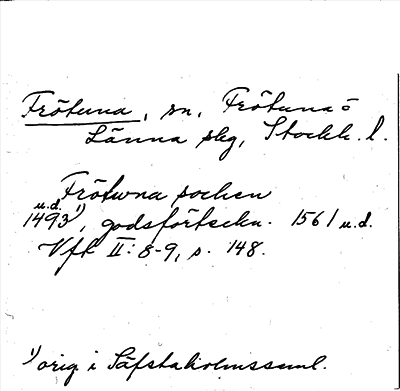 Frötuna, sn, Frötuna o
Länna skg, Stockh. l.
Frötwna sochen
u.d.
1493¹⁾, godsförteckn. 1561 u.d.
Vft II: 8-9, s. 148.
¹⁾ orig. i Säfstaholmssaml.